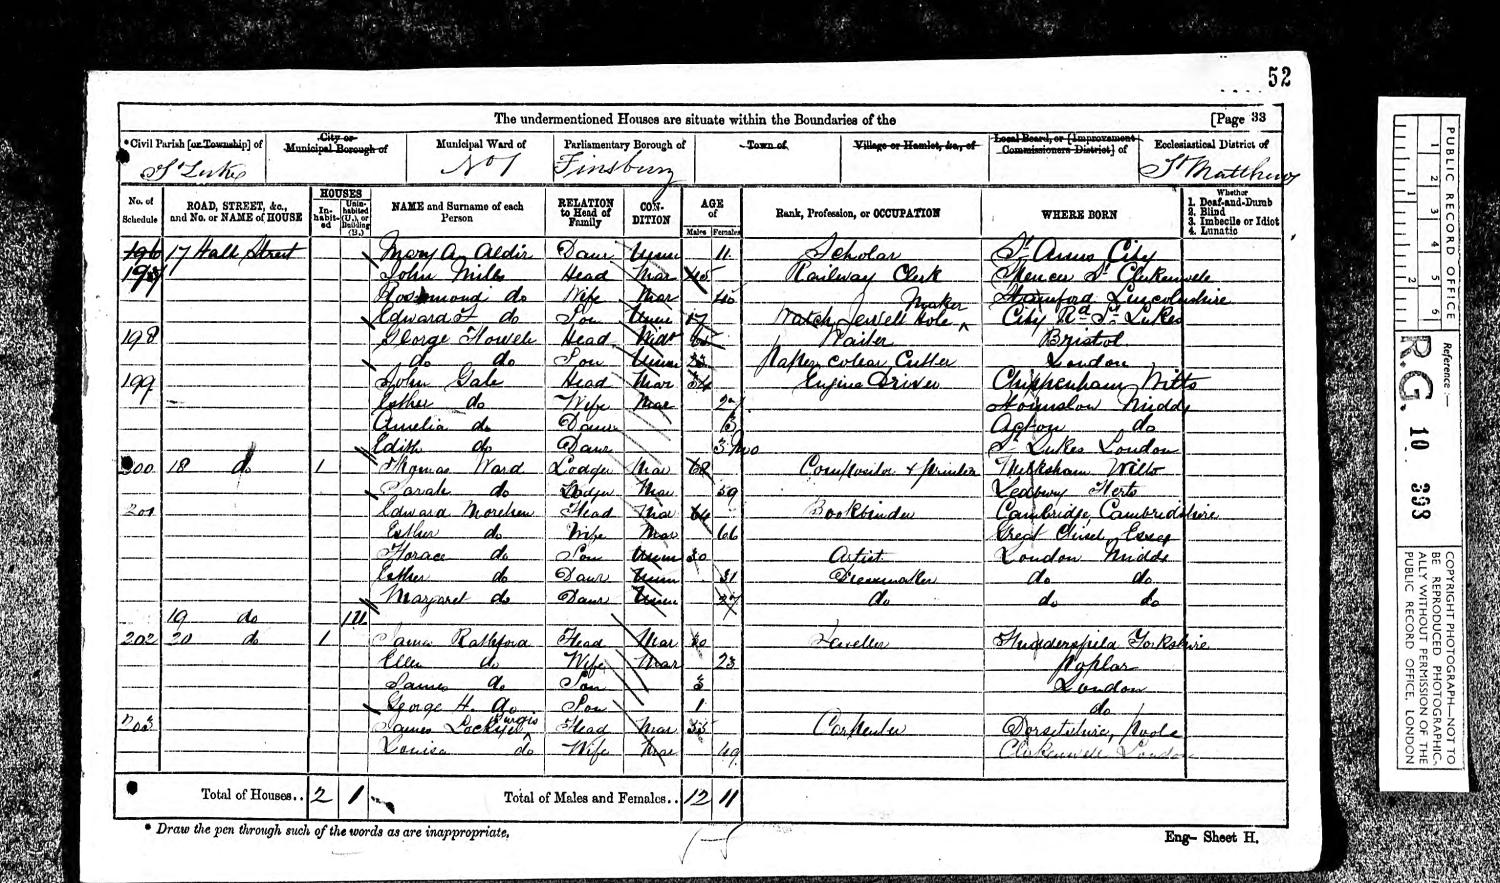 52
The undermentioned Houses are situate within the Boundaries of the [Page 33
*Civil Parish [or Township] of City or Municipal Borough of Municipal Ward of Parliamentary Borough of Town of Village or Hamlet, &c., of Local Board, or [Improvement Commissioners District] of Ecclesiastical District of
St Lukes No 1 Finsbury St Matthews
No. of Schedule ROAD, STREET, &c., and No. or NAME of HOUSE HOUSES Inhabited Uninhabited (U.), or Building (B.) NAME and Surname of each Person RELATION to Head of Family CONDITION AGE of Males Females Rank, Profession, or OCCUPATION WHERE BORN Whether 1. Deaf-and-Dumb 2. Blind 3. Imbecile or Idiot 4. Lunatic
196 17 Hall Street Mary A. Daur Unm 11 Scholar St Anns City
197 John Mills Head Mar 45 Railway Clerk Spencer St Clerkenwell
Rosamond do Wife Mar 40 Stamford Lincolnshire
Edward do Son Unm 17 Watch Jewell Hole Maker City Rd St Lukes
198 George Howell Head Widr Bristol
do do Son Unm Paper Cutter London
199 John Gale Head Mar 34 Engine Driver Chippenham Wilts
Esther do Wife Mar 27 Hounslow Midds
Amelia do Daur 3 Acton do
Edith do Daur 3 Mo St Lukes London
200 18 do 1 Thomas Ward Lodger Mar 68 Compositor & Printer Melksham Wilts
Sarah do Lodger Mar 59 Ledbury
201 Edward Head Mar 64 Bookbinder Cambridge Cambridshire
Esther do Wife Mar 66 Essex
Horace do Son Unm 30 Artist London Midds
Esther do Daur Unm 31 Dressmaker do do
Margaret do Daur Unm 27 do do do
19 do 1U
202 20 do 1 James Head Mar 30 Jeweller Huddersfield Yorkshire
Ellen do Wife Mar 23 Poplar
James do Son 3 London
George H. do Son 1 do
203 James Lockyer Head Mar Carpenter Dorsetshire, Poole
Louisa do Wife Mar 49 Clerkenwell London
Total of Houses.. 2 1 Total of Males and Females.. 12 11
* Draw the pen through such of the words as are inappropriate,
Eng— Sheet H.
PUBLIC RECORD OFFICE
1 2 3 4 5 6
1 2
Reference:—
R.G. 10 393
COPYRIGHT PHOTOGRAPH—NOT TO BE REPRODUCED PHOTOGRAPHICALLY WITHOUT PERMISSION OF THE PUBLIC RECORD OFFICE, LONDON